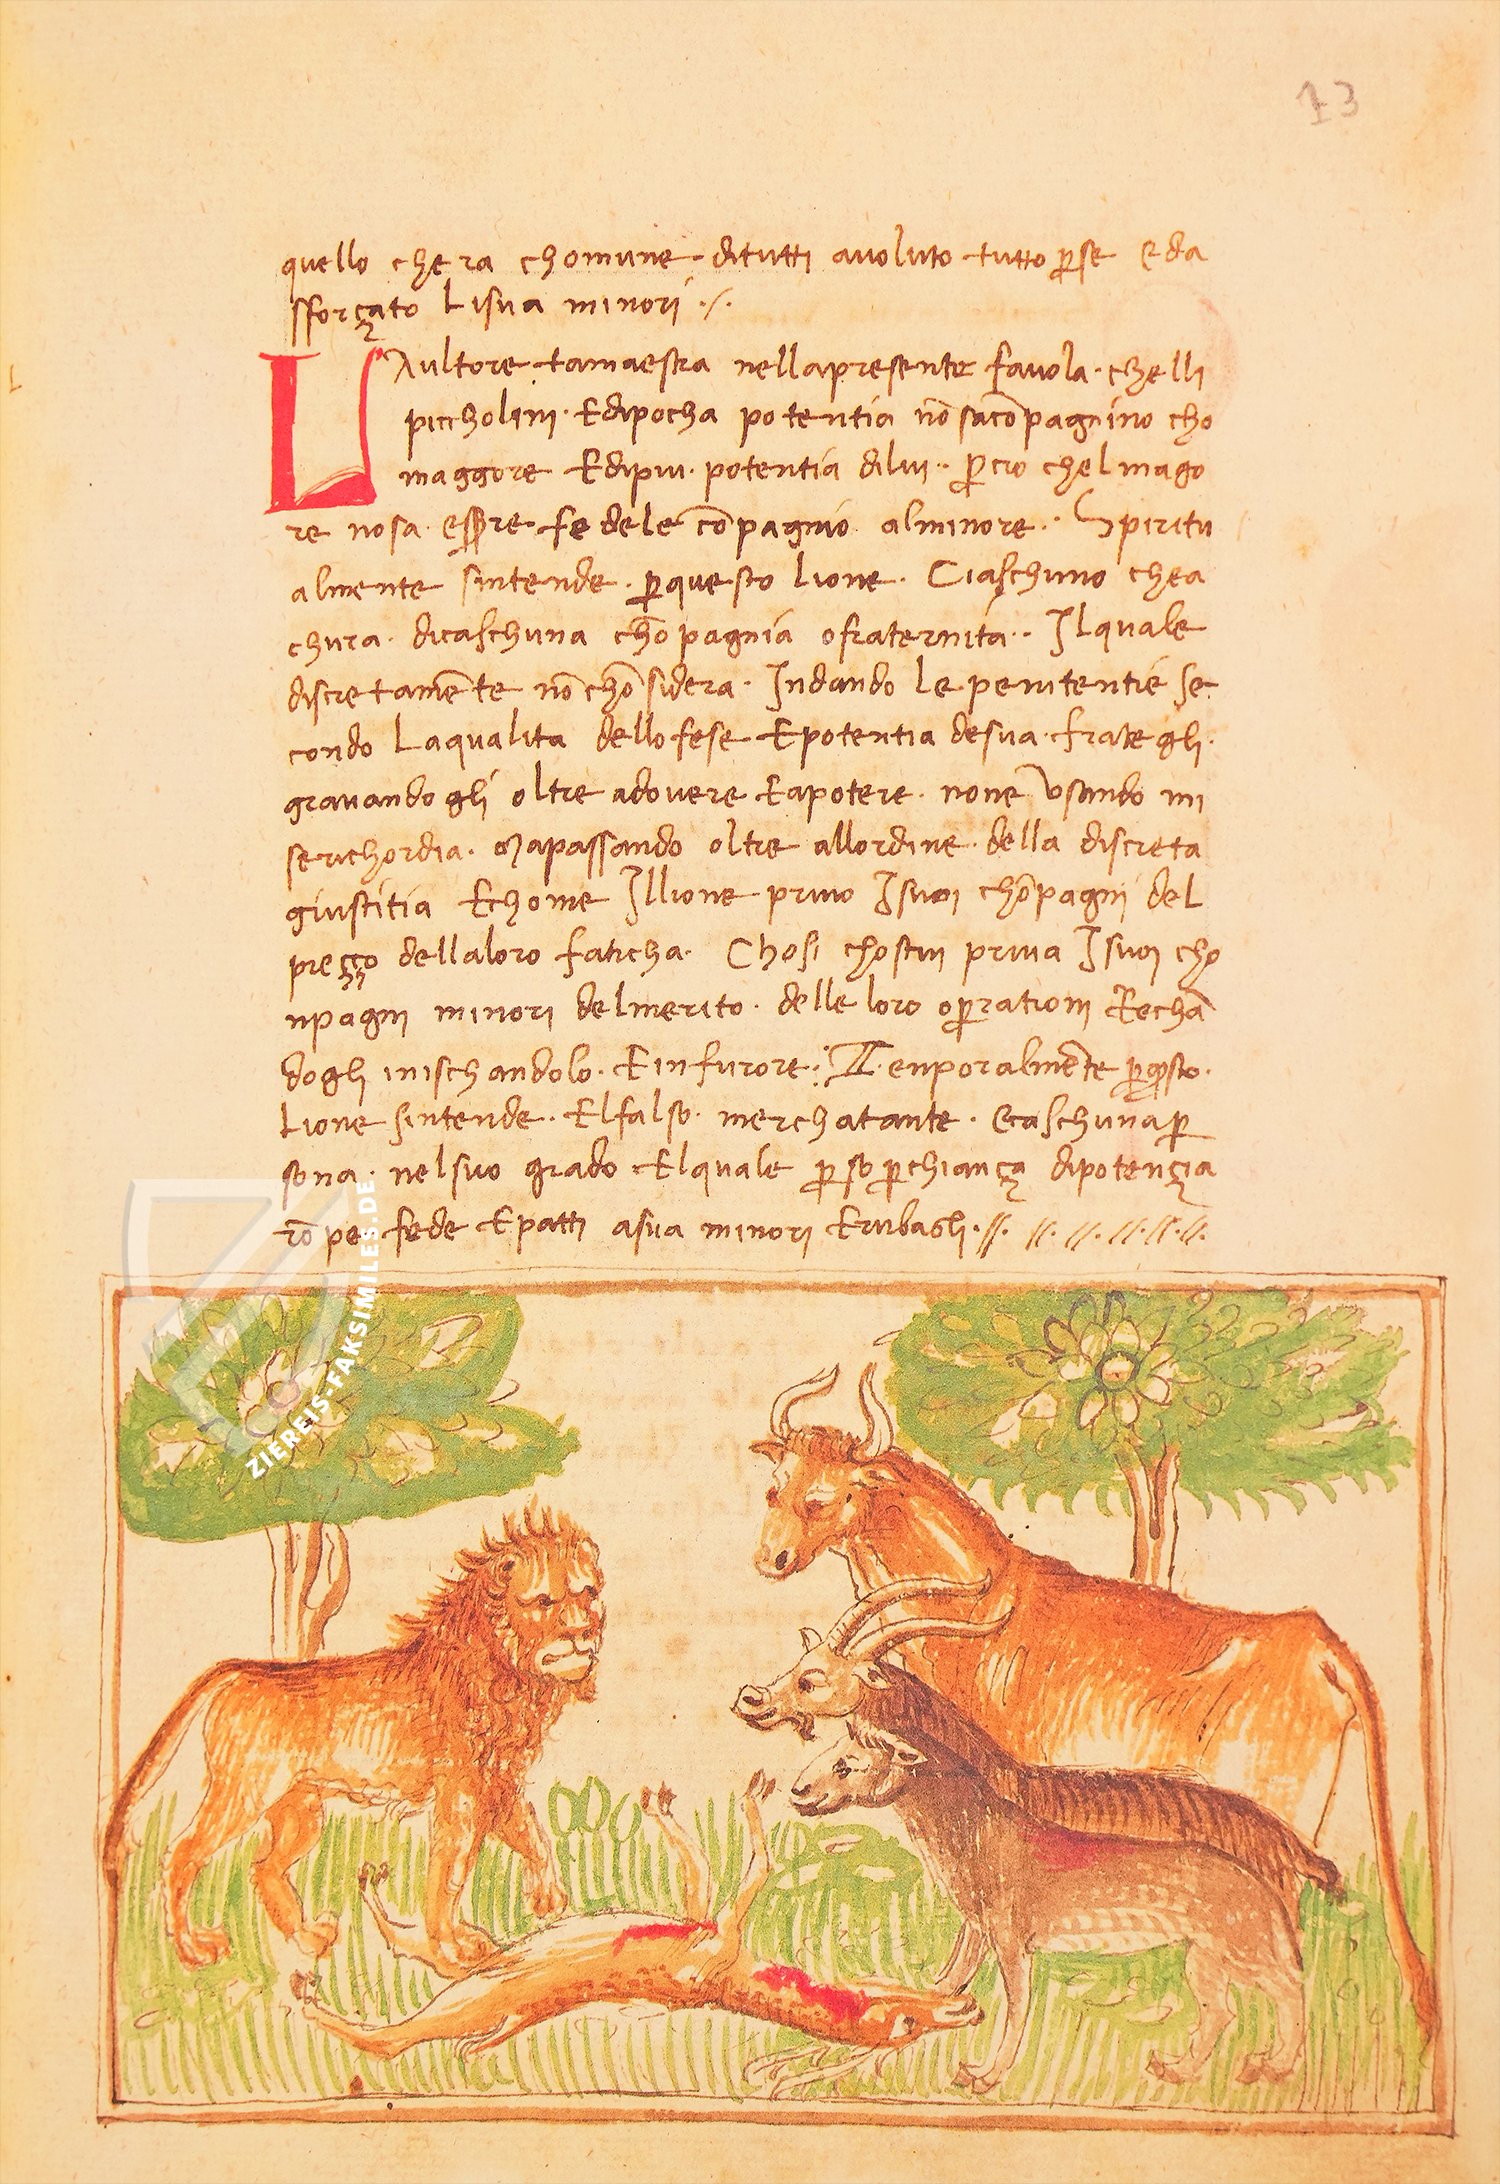 13
quello chera chomune ditutti avoluto tutto p̱se eda
sforçato Lisua minori ·/·
LAultore tamaestra nellapresente favola · chelli
picholini · Edipocha potentia nō sacōpagnino cho
maggore Edipiu · potentia dilui ·· p̱cio chel mago
re nosa · esp̱re · fedele cōpagnio alminore ·· Spiritu
almente sintende · p̱questo lione · Ciaschuno chea
chura · dicaschuna chōpagnia ofraternita ·· Ilquale
discretamēte nō chōsidera · Indando le penitentie se
condo Laqualita dellofese Epotentia desua · frategli ·
gravandogli oltre adovere Eapotere · none Vsando mi
serichordia · Mapassando oltre allordine · della discreta
giustitia Echome Illione privo Isuoi chōpagni del
preçço dellaloro faticha · Chosi chostui priva Isuoi cho
npagni minori delmerito · delle loro op̱rationi Rechā
dogli inischandolo · Einfurore : Tenporalmēte p̱q̱sto ·
Lione sintende ·· Elfalso · merchatante · Ecaschunap̱
sona · nelsuo grado Elquale p̱ sop̱chiança dipotençia
rōpe · fede Epatti asua minori Erubagli · //· //· //· //· //· //·
ZIEREIS-FAKSIMILES.DE